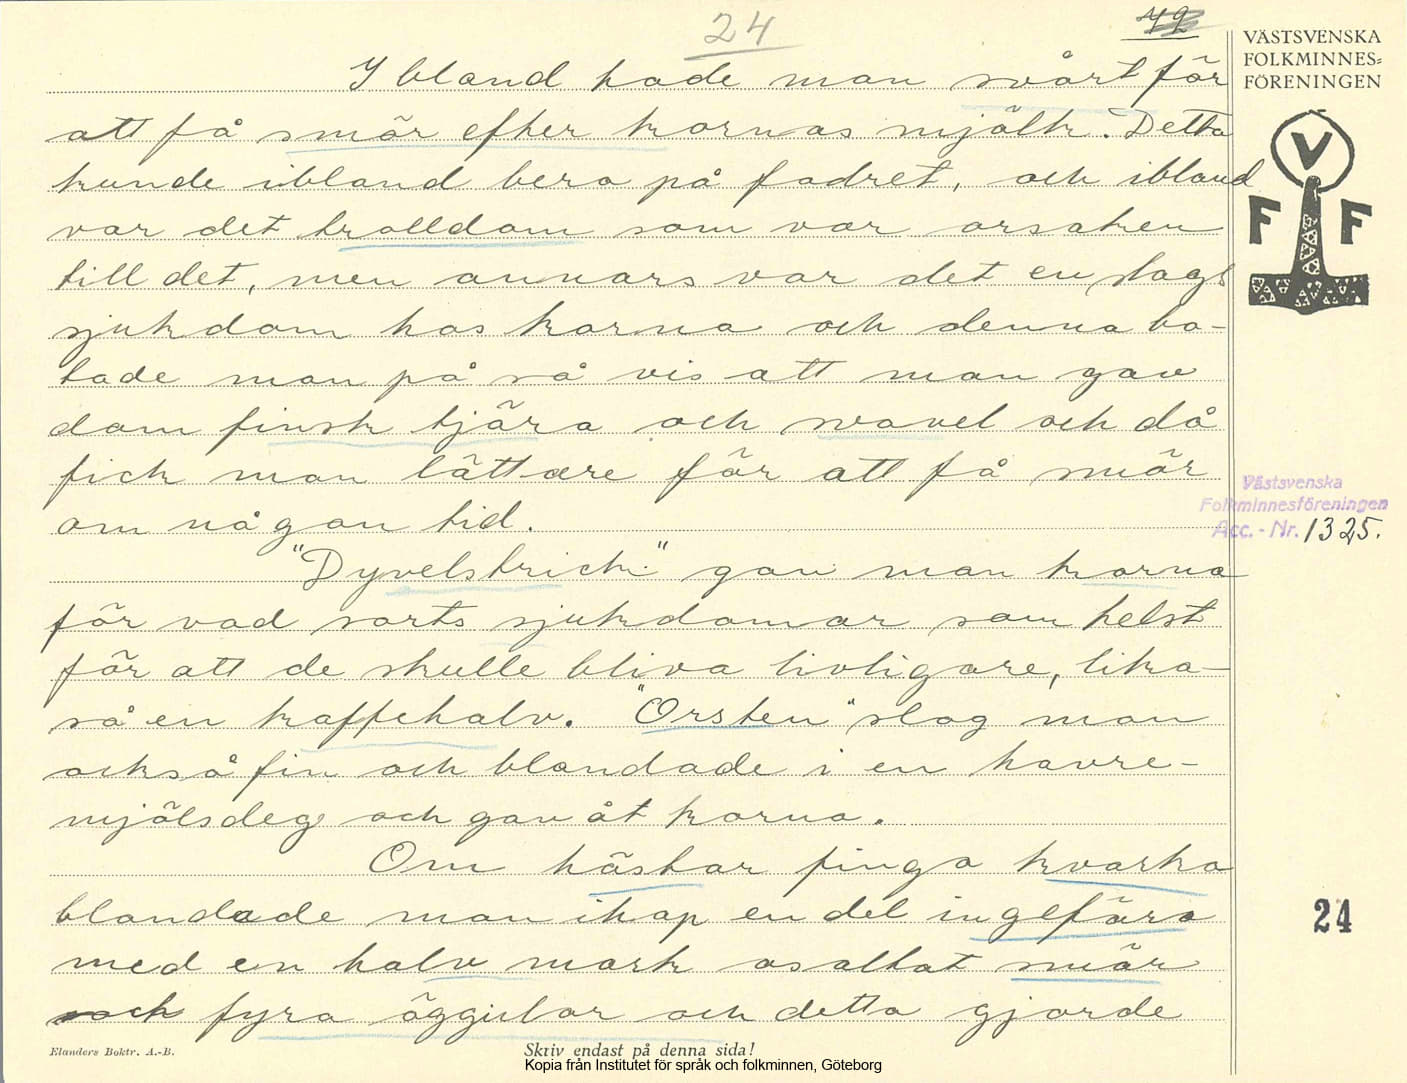 24
VÄSTSVENSKA
FOLKMINNES=
FÖRENINGEN
V
F F
I bland hade man svårt för
att få smör efter kornas mjölk. Detta
kunde ibland bero på fodret, och ibland
var det trolldom som var orsaken
till det, men annars var det en slags
sjukdom hos korna och denna bo-
tade man på så vis att man gav
dom finsk tjära och svavel och då
fick man lättare för att få smör
om någon tid.
"Dyvelstrick" gav man korna
för vad sorts sjukdomar som helst
för att de skulle bliva livligare, lika-
så en kaffehalv. "Orsten" slog man
också fin och blandade i en havre-
mjölsdeg och gav åt korna.
Om hästar finga kvarka
blandade man ihop en del ingefära
med en halv mark osaltat smör
och fyra äggulor och detta gjorde
Västsvenska
Folkminnesföreningen
Acc. - Nr. 1325.
24
Elanders Boktr. A.-B.
Skriv endast på denna sida!
Kopia från Institutet för språk och folkminnen, Göteborg